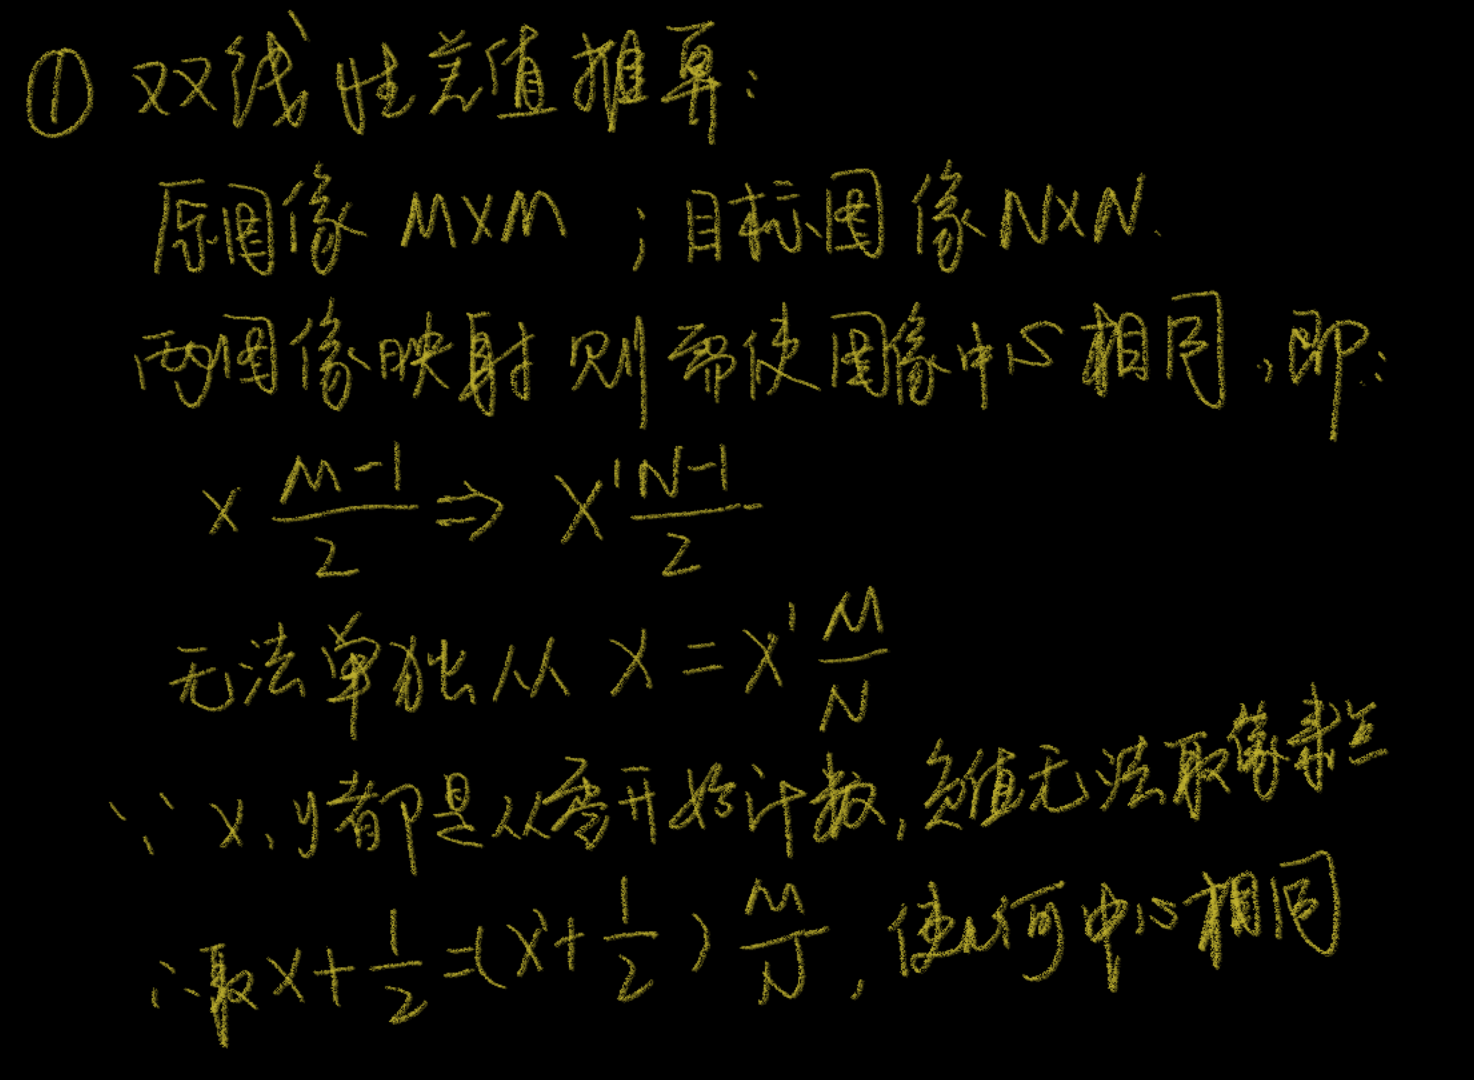 ① 双线性差值推算:
原图像 M×M ; 目标图像 N×N.
两图像映射则需使图像中心相同,即:
x \frac{M-1}{2} ⇒ x' \frac{N-1}{2}
无法单独从 x = x' \frac{M}{N}
∵ x、y都是从零开始计数,负值无法取像素点
∴取 x + \frac{1}{2} = (x' + \frac{1}{2}) \frac{M}{N}, 使几何中心相同